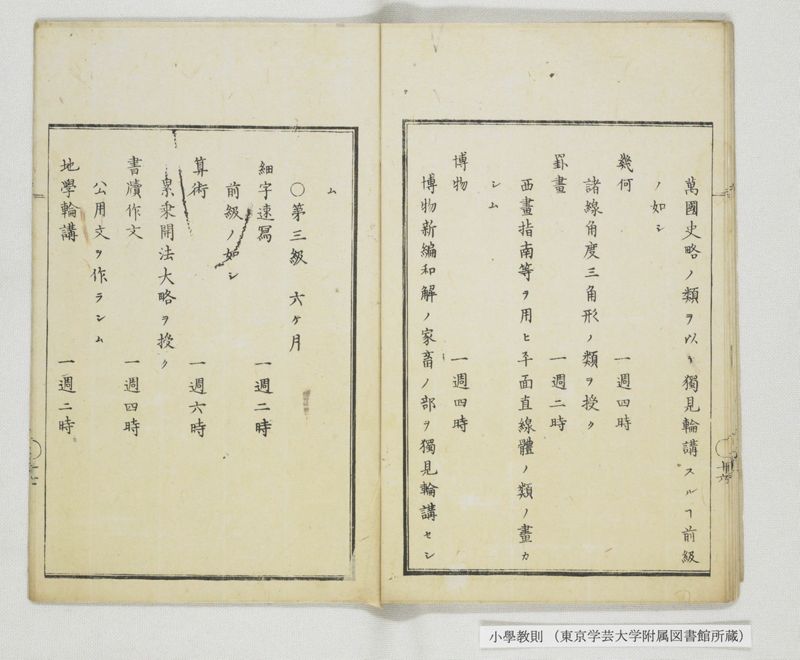 萬國史略ノ類ヲ以テ獨見輪講スルヿ前級
ノ如シ
幾何 一週四時
諸線角度三角形ノ類ヲ授ク
罫畫 一週二時
西畫指南等ヲ用ヒ平面直線體ノ類ノ畫カ
シム
博物 一週四時
博物新編和解ノ家畜ノ部ヲ獨見輪講セシ
ム
○第三級 六ケ月
細字速寫 一週二時
前級ノ如シ
算術 一週六時
累乘開法大略ヲ授ク
書牘作文 一週四時
公用文ヲ作ラシム
地學輪講 一週二時
小學教則（東京学芸大学附属図書館所蔵）